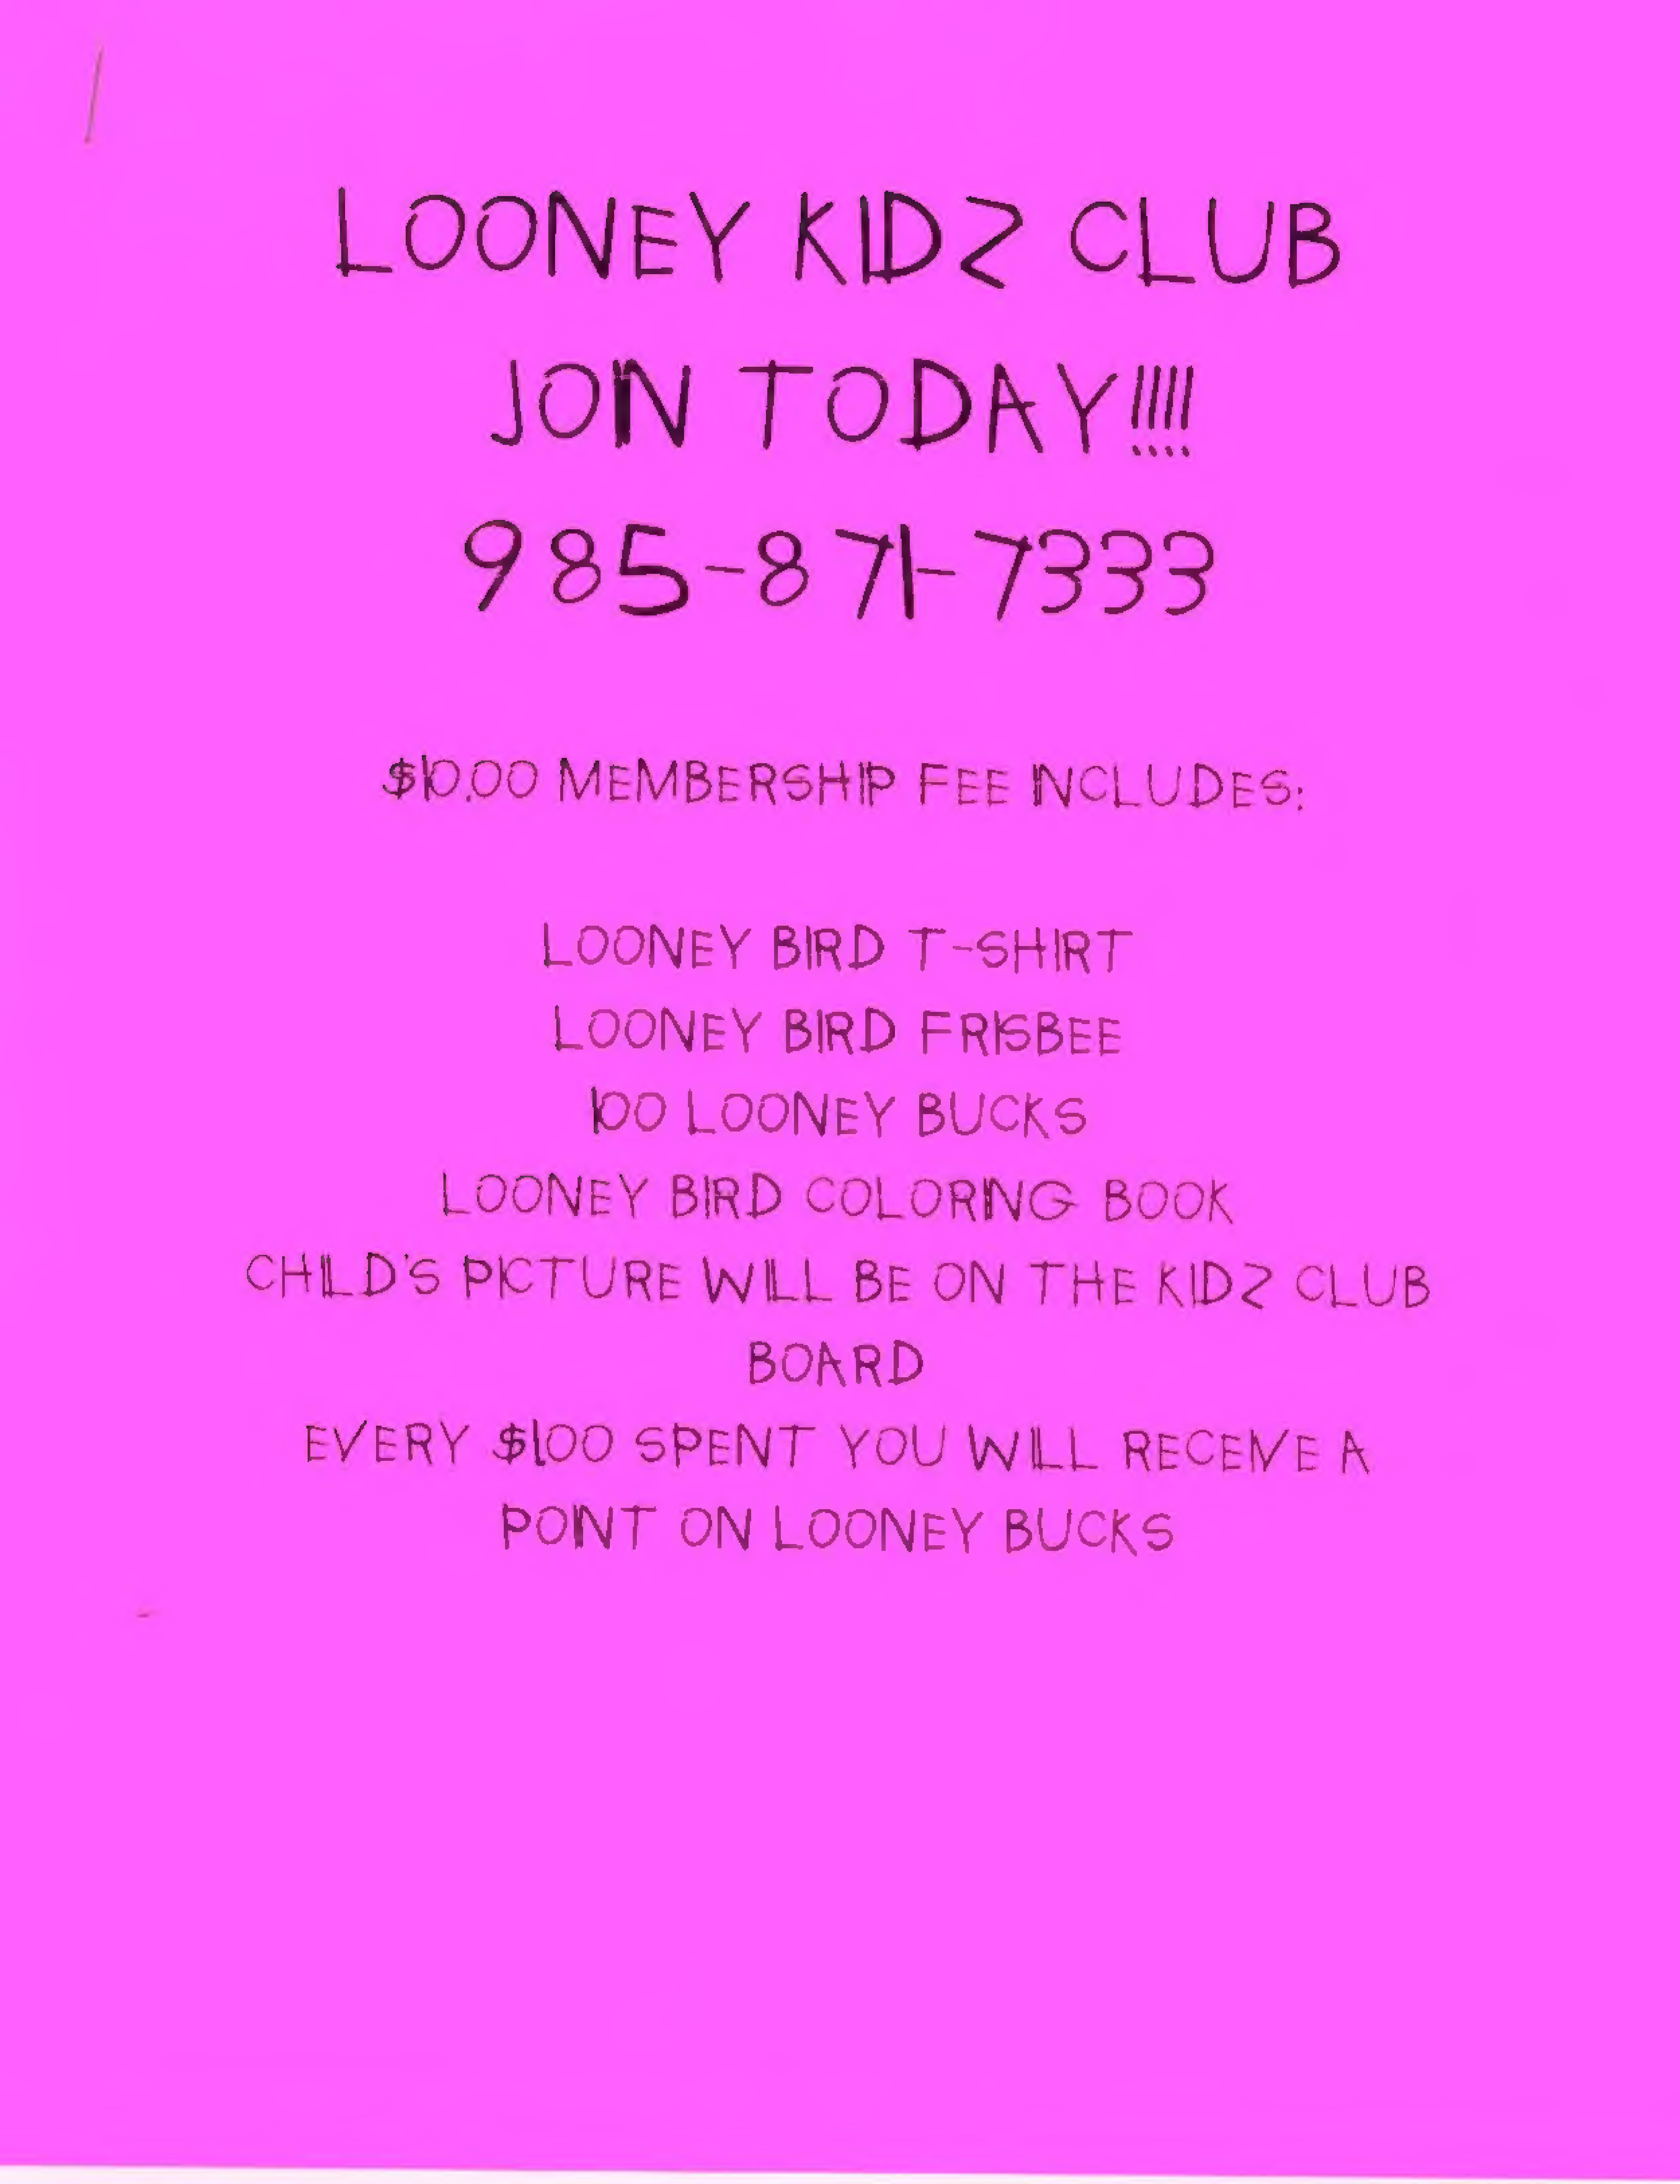 LOONEY KIDZ CLUB
JOIN TODAY!!!!
985-871-7333
$10.00 MEMBERSHIP FEE INCLUDES:
LOONEY BIRD T-SHIRT
LOONEY BIRD FRISBEE
100 LOONEY BUCKS
LOONEY BIRD COLORING BOOK
CHILD'S PICTURE WILL BE ON THE KIDZ CLUB
BOARD
EVERY $1.00 SPENT YOU WILL RECEIVE A
POINT ON LOONEY BUCKS